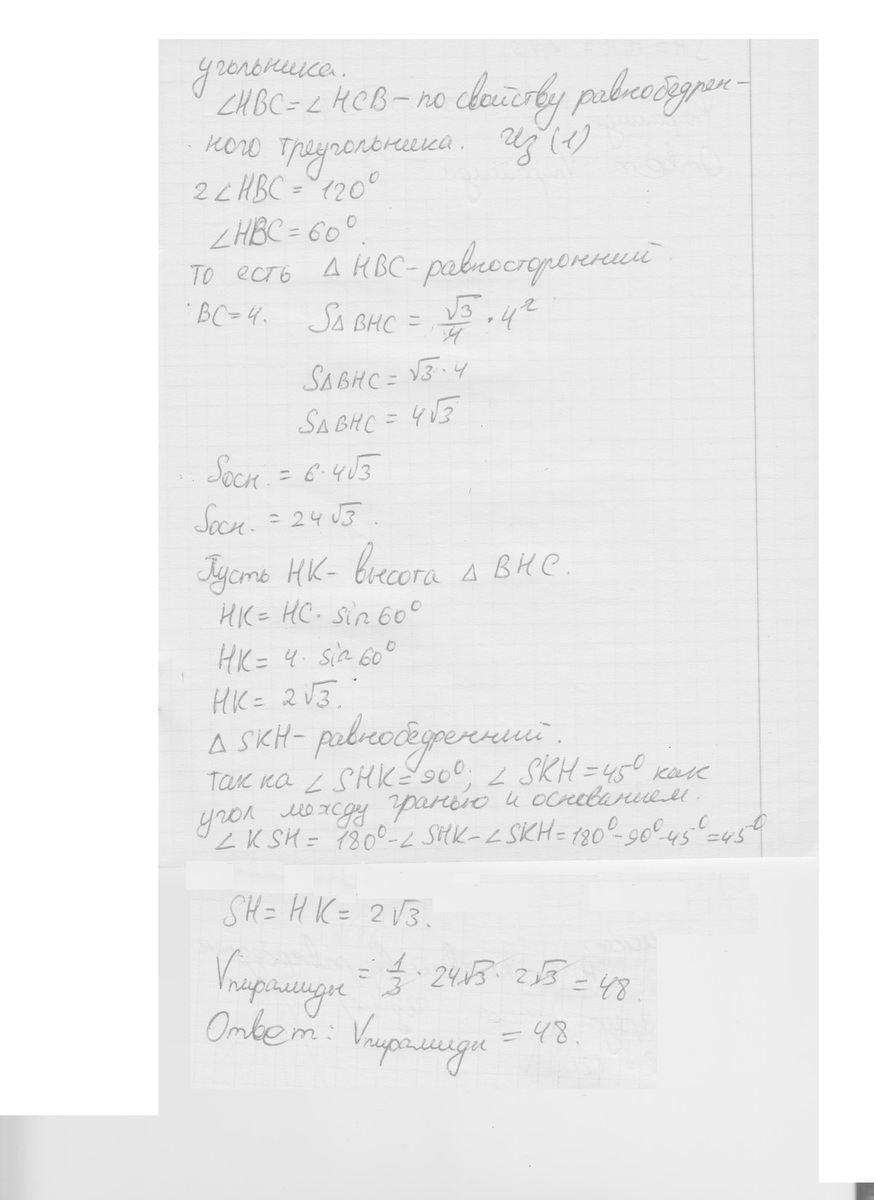 угольника.
∠HBC = ∠HCB – по свойству равнобедрен-
ного треугольника. Из (1)
2∠HBC = 120⁰
∠HBC = 60⁰.
То есть △ HBC – равносторонний.
BC = 4. S△BHC = √3/4 · 4²
S△BHC = √3 · 4
S△BHC = 4√3
Sосн. = 6 · 4√3
Sосн. = 24√3.
Пусть HK – высота △ BHC.
HK = HC · sin 60⁰
HK = 4 · sin 60⁰
HK = 2√3.
△ SKH – равнобедренний.
Так ка ∠ SHK = 90⁰, ∠ SKH = 45⁰ как
угол между гранью и основанием.
∠ KSH = 180⁰ - ∠ SHK - ∠ SKH = 180⁰ - 90⁰ - 45⁰ = 45⁰
SH = HK = 2√3.
Vпирамиды = 1/3 · 24√3 · 2√3 = 48.
Ответ: Vпирамиды = 48.